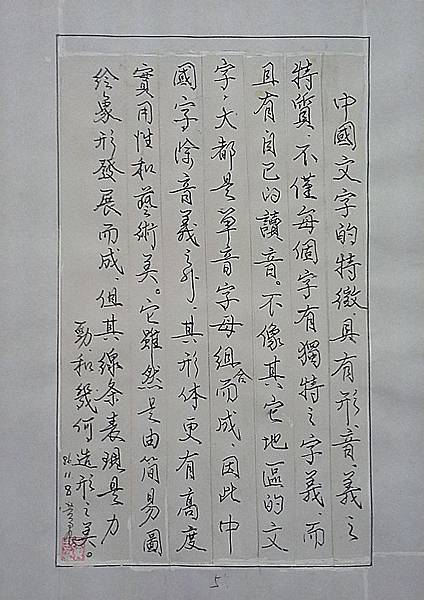 中國文字的特徵,具有形、音、義之
特質,不僅每個字有獨特之字義,而
且有自己的讀音。不像其它地區的文
字,大都是單音字母組合而成,因此中
國字除音義之外,其形体更有高度
實用性和藝術美。它雖然是由簡易圖
绘象形發展而成,但其線条表現是力
勁和幾何造形之美。
5